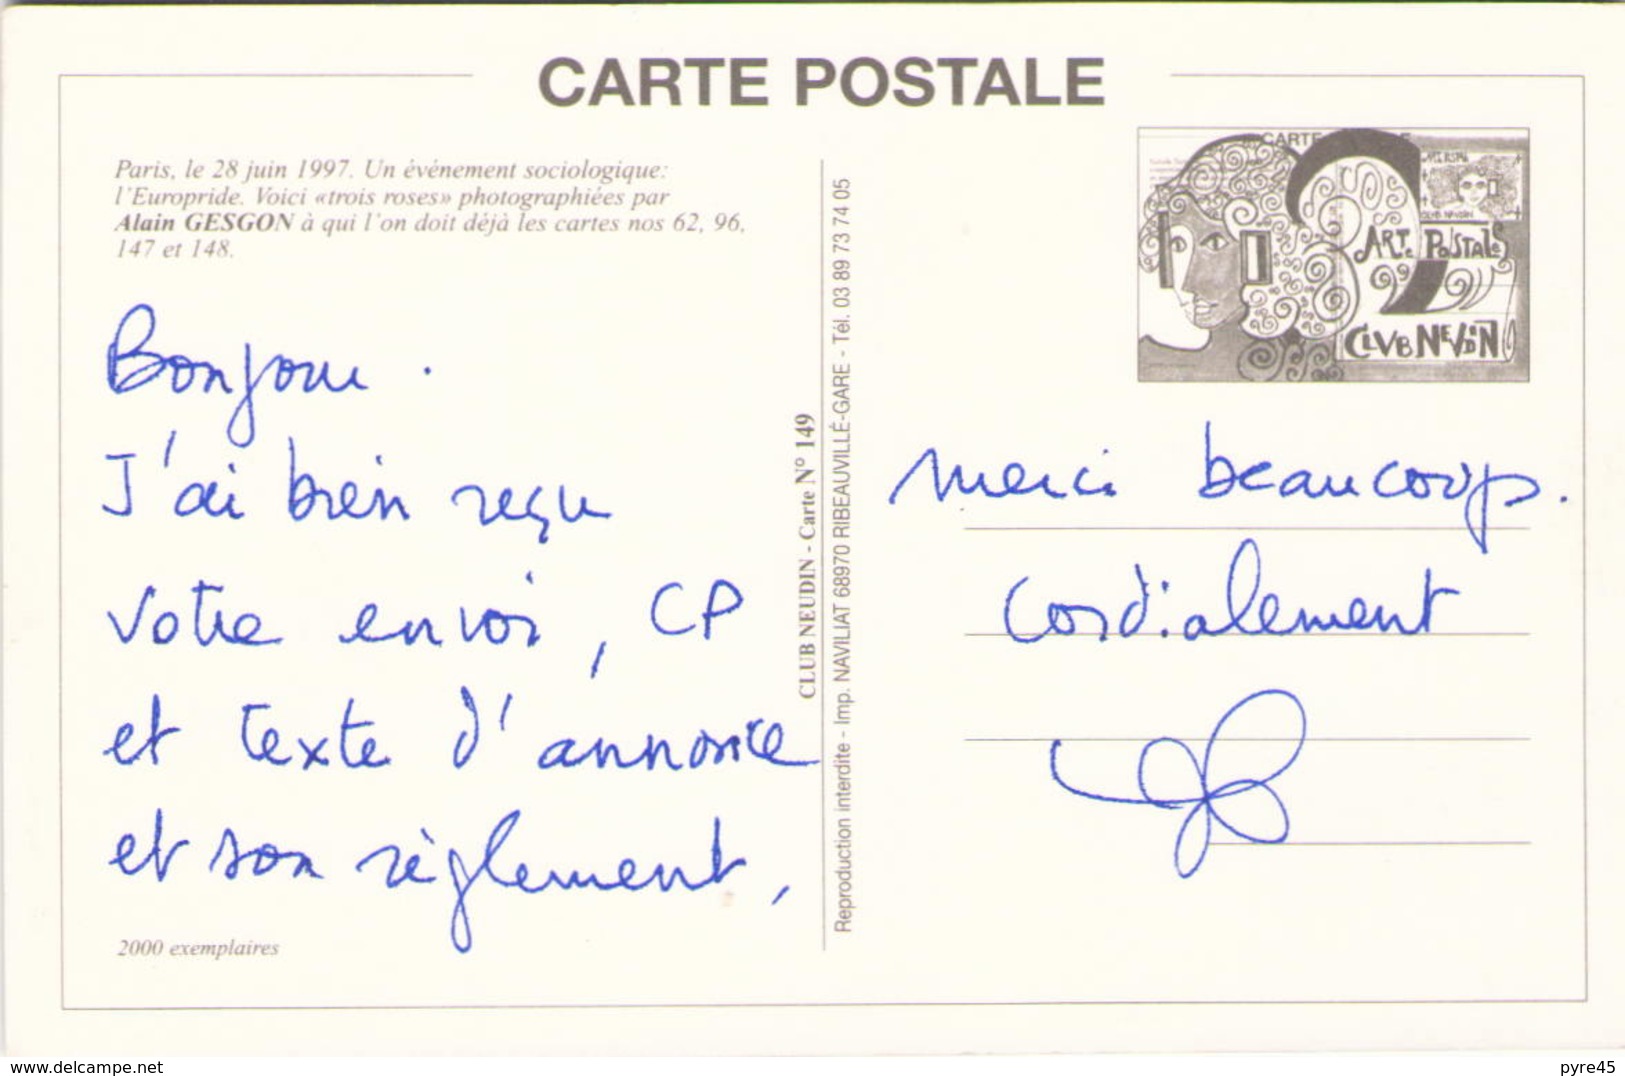 CARTE POSTALE
Paris, le 28 juin 1997. Un événement sociologique:
l'Europride. Voici «trois roses» photographiées par
Alain GESGON à qui l'on doit déjà les cartes nos 62, 96,
147 et 148.
Bonjour.
J'ai bien reçu
votre envoi, CP
et texte d'annonce
et son règlement,
2000 exemplaires
CLUB NEUDIN - Carte N° 149
Reproduction interdite - Imp. NAVILIAT 68970 RIBEAUVILLÉ-GARE - Tél. 03 89 73 74 05
ART POSTALE
CLUB NEUDIN
merci beaucoup.
cordialement
www.delcampe.net
pyre45